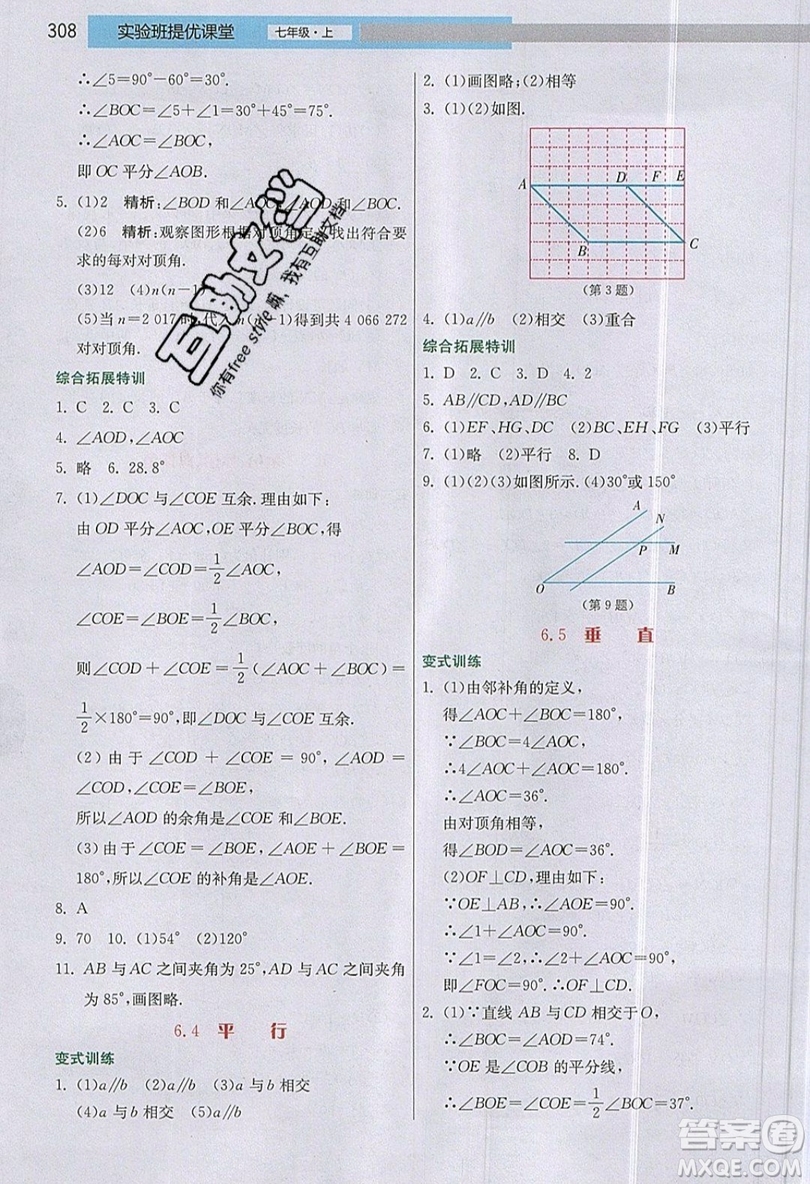 308 实验班提优课堂 七年级·上
∴∠5=90°-60°=30°.
∴∠BOC=∠5+∠1=30°+45°=75°.
∴∠AOC=∠BOC,
即 OC 平分∠AOB.
5. (1)2 精析:∠BOD 和∠AOC,∠AOD 和∠BOC.
(2)6 精析:观察图形根据对顶角定义找出符合要
求的每对对顶角.
(3)12 (4)n(n-1)
(5)当 n=2 017 时,代入 n(n-1)得到共 4 066 272
对对顶角.
综合拓展特训
1. C 2. C 3. C
4. ∠AOD,∠AOC
5. 略 6. 28.8°
7. (1)∠DOC 与∠COE 互余. 理由如下:
由 OD 平分∠AOC,OE 平分∠BOC,得
∠AOD=∠COD=1/2∠AOC,
∠COE=∠BOE=1/2∠BOC,
则∠COD+∠COE=1/2(∠AOC+∠BOC)=
1/2×180°=90°,即∠DOC 与∠COE 互余.
(2) 由于 ∠AOD + ∠COE = 90°, ∠AOD =
∠COD,∠COE=∠BOE,
所以∠AOD 的余角是∠COE 和∠BOE.
(3) 由于 ∠COE = ∠BOE, ∠BOE + ∠AOE =
180°,所以∠COE 的补角是∠AOE.
8. A
9. 70 10. (1)54° (2)120°
11. AB 与 AC 之间夹角为 25°,AD 与 AC 之间夹角
为 85°,画图略.
6.4 平 行
变式训练
1. (1)a∥b (2)a∥b (3)a 与 b 相交
(4)a 与 b 相交 (5)a∥b
2. (1)画图略;(2)相等
3. (1)(2)如图.
A D F E B C
(第 3 题)
4. (1)a∥b (2)相交 (3)重合
综合拓展特训
1. D 2. C 3. D 4. 2
5. AB∥CD,AD∥BC
6. (1)EF、HG、DC (2)BC、EH、FG (3)平行
7. (1)略 (2)平行 8. D
9. (1)(2)(3)如图所示. (4)30°或 150°
A N P M O B
(第 9 题)
6.5 垂 直
变式训练
1. (1)由邻补角的定义,
得∠AOC+∠BOC=180°,
∵∠BOC=4∠AOC,
∴4∠AOC+∠AOC=180°.
∴∠AOC=36°.
由对顶角相等,
得∠BOD=∠AOC=36°.
(2)OF⊥CD,理由如下:
∵OE⊥AB,∴∠AOE=90°.
∵∠1=∠2,∴∠2+∠AOC=90°.
∴∠FOC=90°.∴OF⊥CD.
2. (1)∵直线 AB 与 CD 相交于 O,
∴∠BOC=∠AOD=74°.
∵OE 是∠COB 的平分线,
∴∠BOE=∠COE=1/2∠BOC=37°.
互助文档
你有free style嘛,我有互助文档
答案圈
MXQE.COM